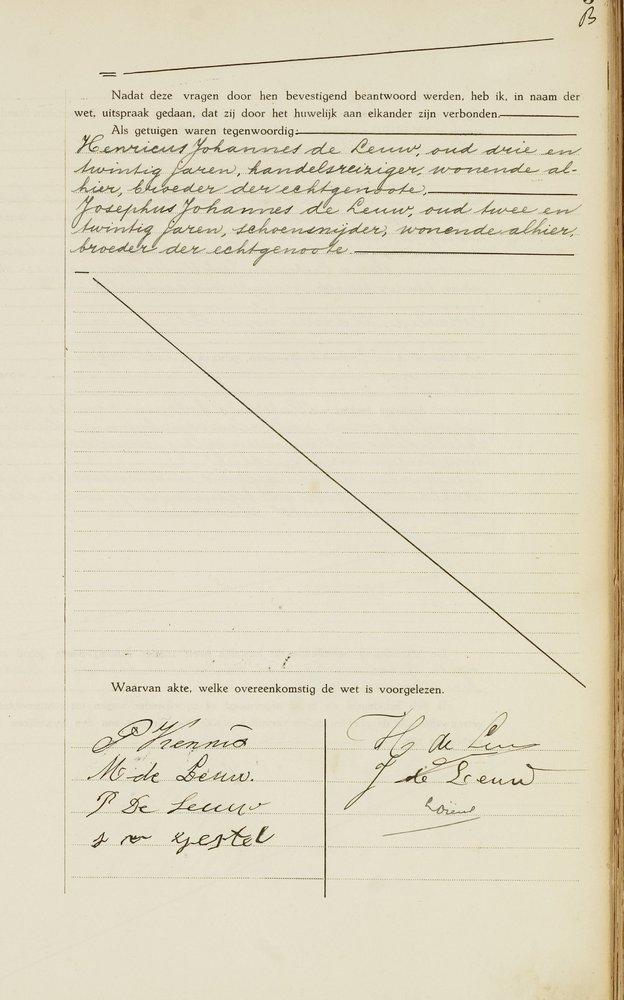 B
Nadat deze vragen door hen bevestigend beantwoord werden, heb ik, in naam der
wet, uitspraak gedaan, dat zij door het huwelijk aan elkander zijn verbonden.
Als getuigen waren tegenwoordig:
Henricus Johannes de Leeuw, oud drie en
twintig jaren, handelsreiziger, wonende al-
hier, broeder der echtgenoote.
Josephus Johannes de Leeuw, oud twee en
twintig jaren, schoensnijder, wonende alhier,
broeder der echtgenoote.
Waarvan akte, welke overeenkomstig de wet is voorgelezen.
P
M de Leeuw.
P De Leeuw
gestel
H de Leeuw
J de Leeuw